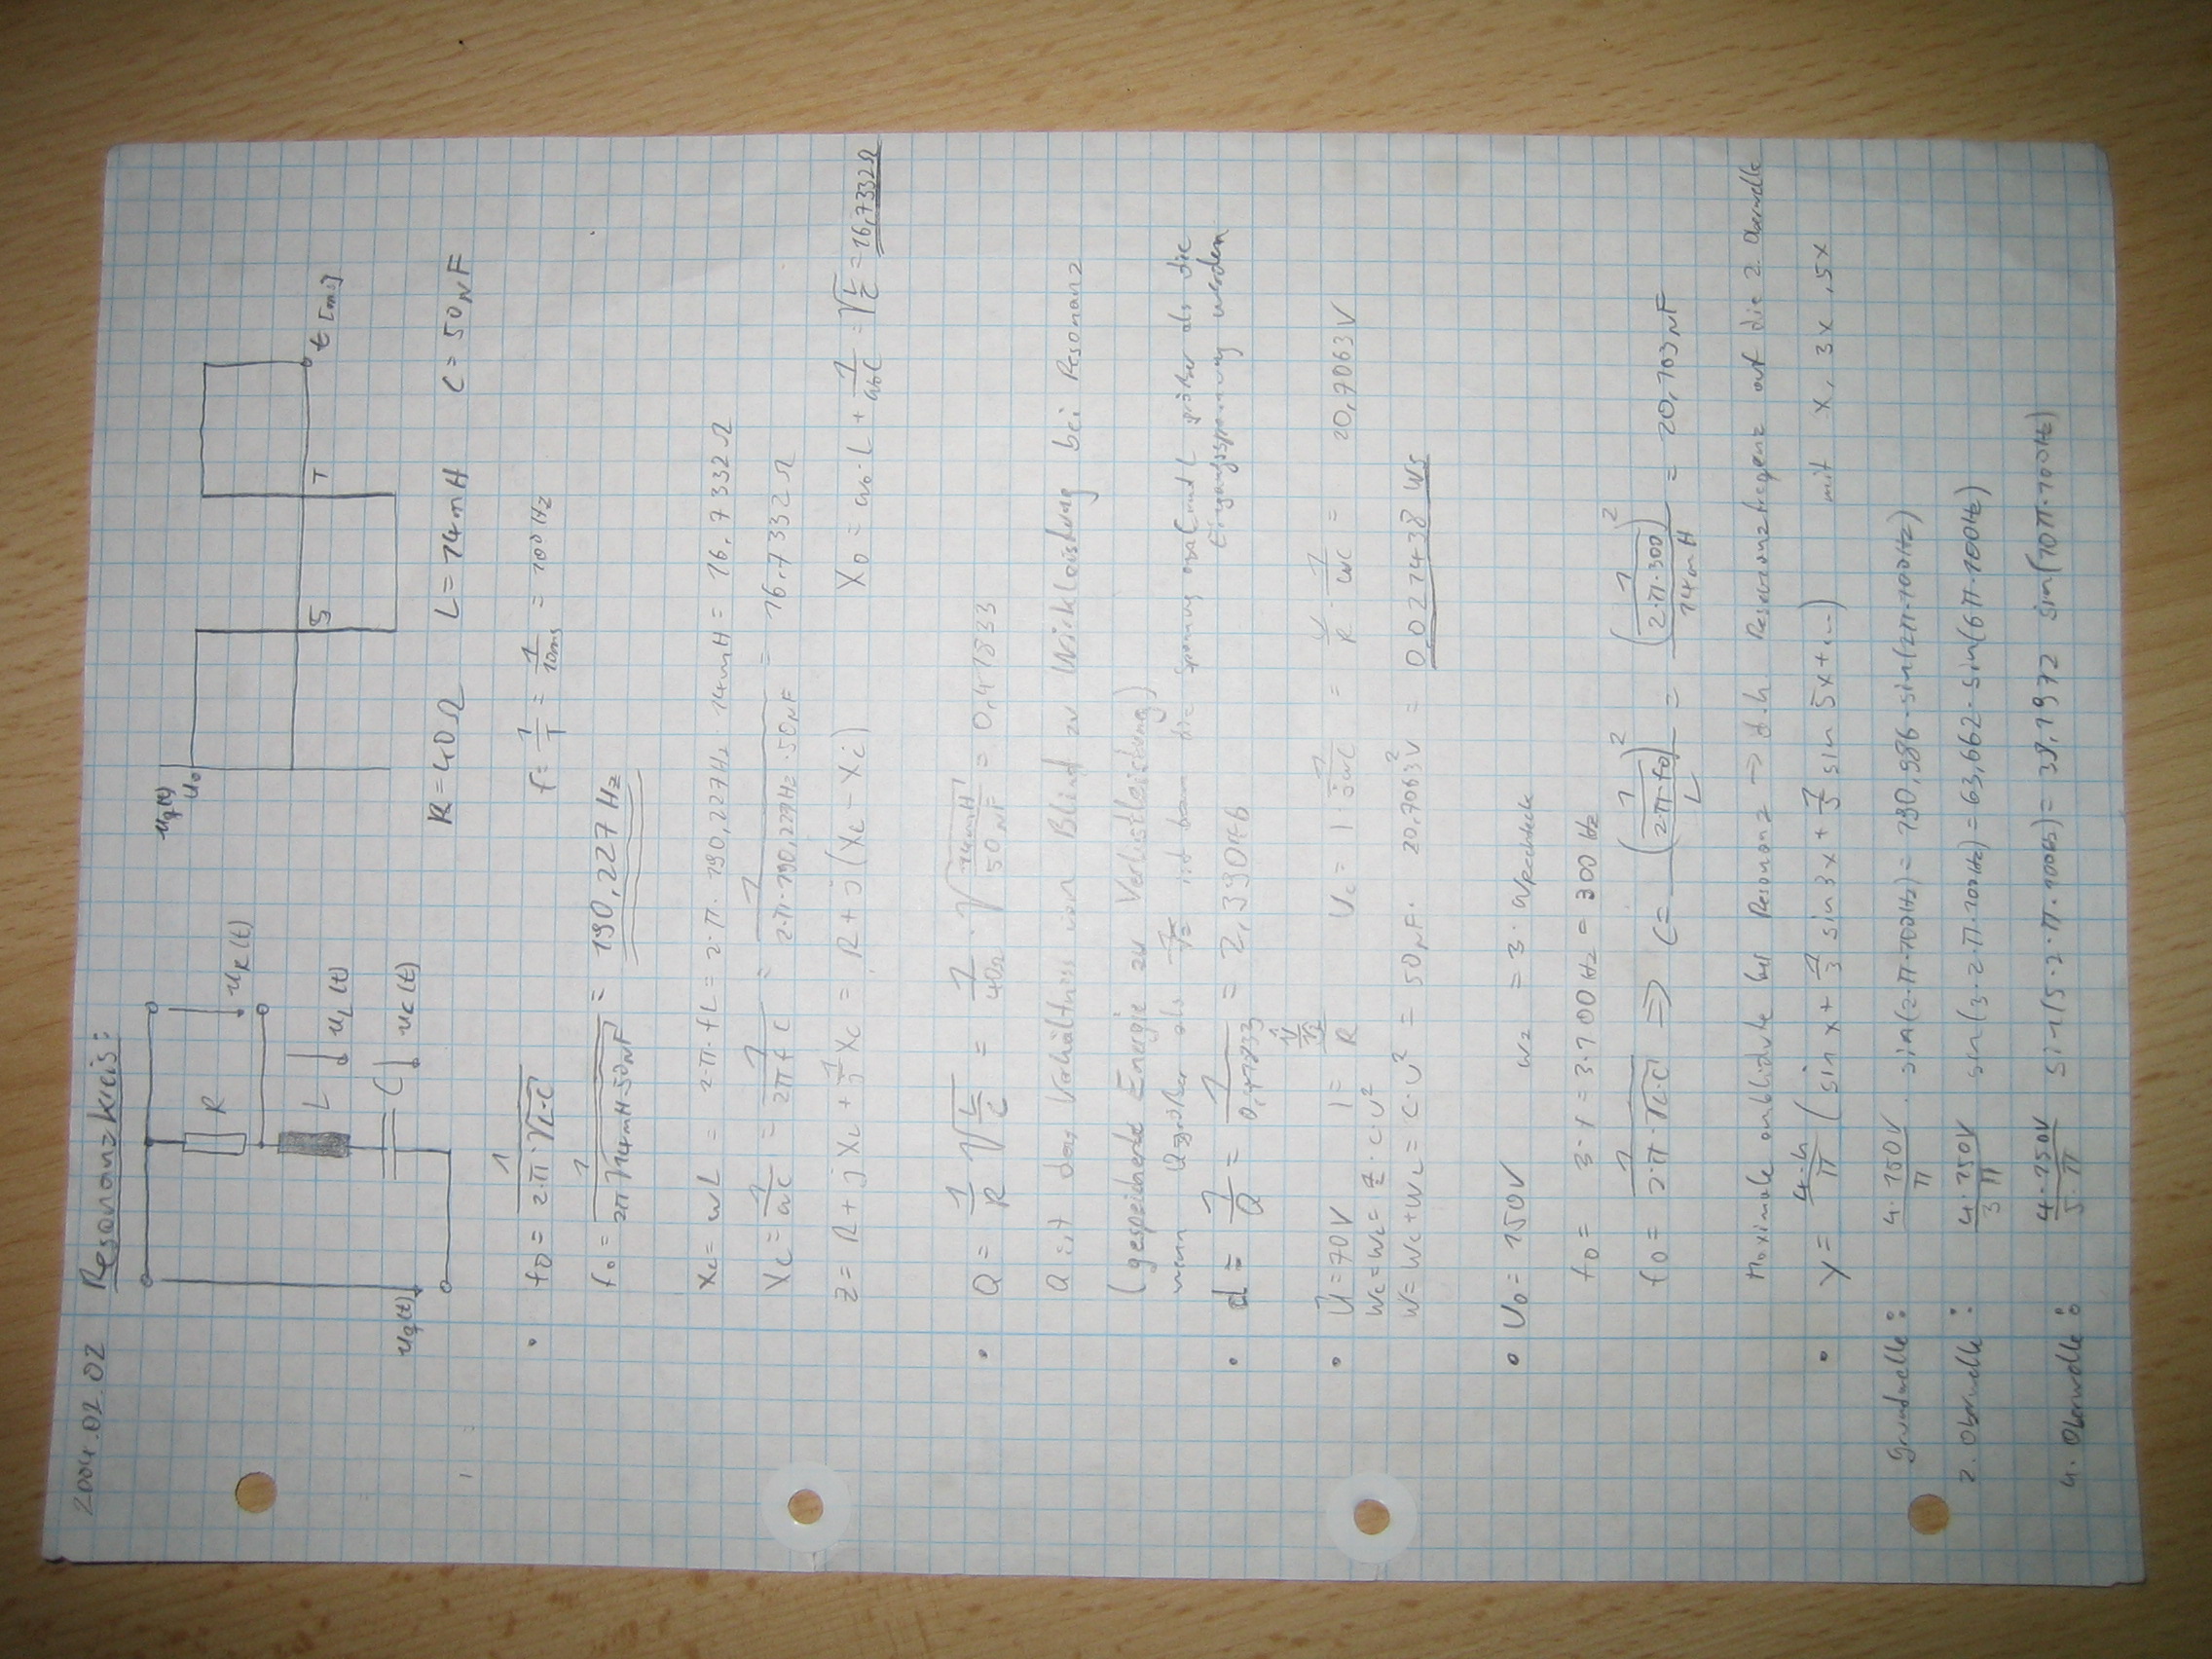 2004.02.02 Resonanzkreis:
ug(t)
R
uR(t)
L
uL(t)
C
uC(t)
ug(t)
U0
5
T
t [ms]
R=40Ω L=14mH C=50µF
• f0 = 1/(2·π·√(L·C)) f = 1/T = 1/10ms = 100 Hz
f0 = 1/(2π√(14mH·50µF)) = 190,227 Hz
XL = ωL = 2·π·fL = 2·π·190,227Hz·14mH = 16,7332 Ω
XC = 1/ωC = 1/(2πfC) = 1/(2·π·190,227Hz·50µF) = 16,7332 Ω
Z = R + jXL + 1/j XC = R + j(XL − XC) X0 = ω0·L + 1/ω0C = √(L/C) = 16,7332Ω
• Q = 1/R √(L/C) = 1/40Ω · √(14mH/50µF) = 0,41833
Q ist das Verhältnis von Blind zu Wirkleistung bei Resonanz
(gespeicherte Energie zu Verlustleistung)
wenn Q größer als 1/√2 ist kann die Spannung an C und L größer als die
Eingangsspannung werden
• d = 1/Q = 1/0,41833 = 2,39046
• Û = 70V I = (Û/√2)/R UC = I 1/jωC = U/R · 1/ωC = 20,7063V
WL = WC = 1/2 · C U²
W = WC + WL = C·U² = 50µF · 20,7063V² = 0,021438 Ws
• U0 = 150V ω2 = 3·ωRechteck
f0 = 3·f = 3·100Hz = 300 Hz
f0 = 1/(2·π·√(L·C)) ⇒ C = (1/(2·π·f0))²/L = (1/(2·π·300))²/14mH = 20,103µF
Maximale Amplitude bei Resonanz → d.h. Resonanzfrequenz auf die 2. Oberwelle
• y = 4·h/π (sin x + 1/3 sin 3x + 1/5 sin 5x + …) mit x, 3x, 5x
Grundwelle: 4·150V/π · sin(2·π·100Hz) = 190,986·sin(2π·100Hz)
2. Oberwelle: 4·150V/3π sin(3·2·π·100Hz) = 63,662·sin(6π·100Hz)
4. Oberwelle: 4·150V/5·π sin(5·2·π·100Hz) = 38,1972 sin(10π·100Hz)